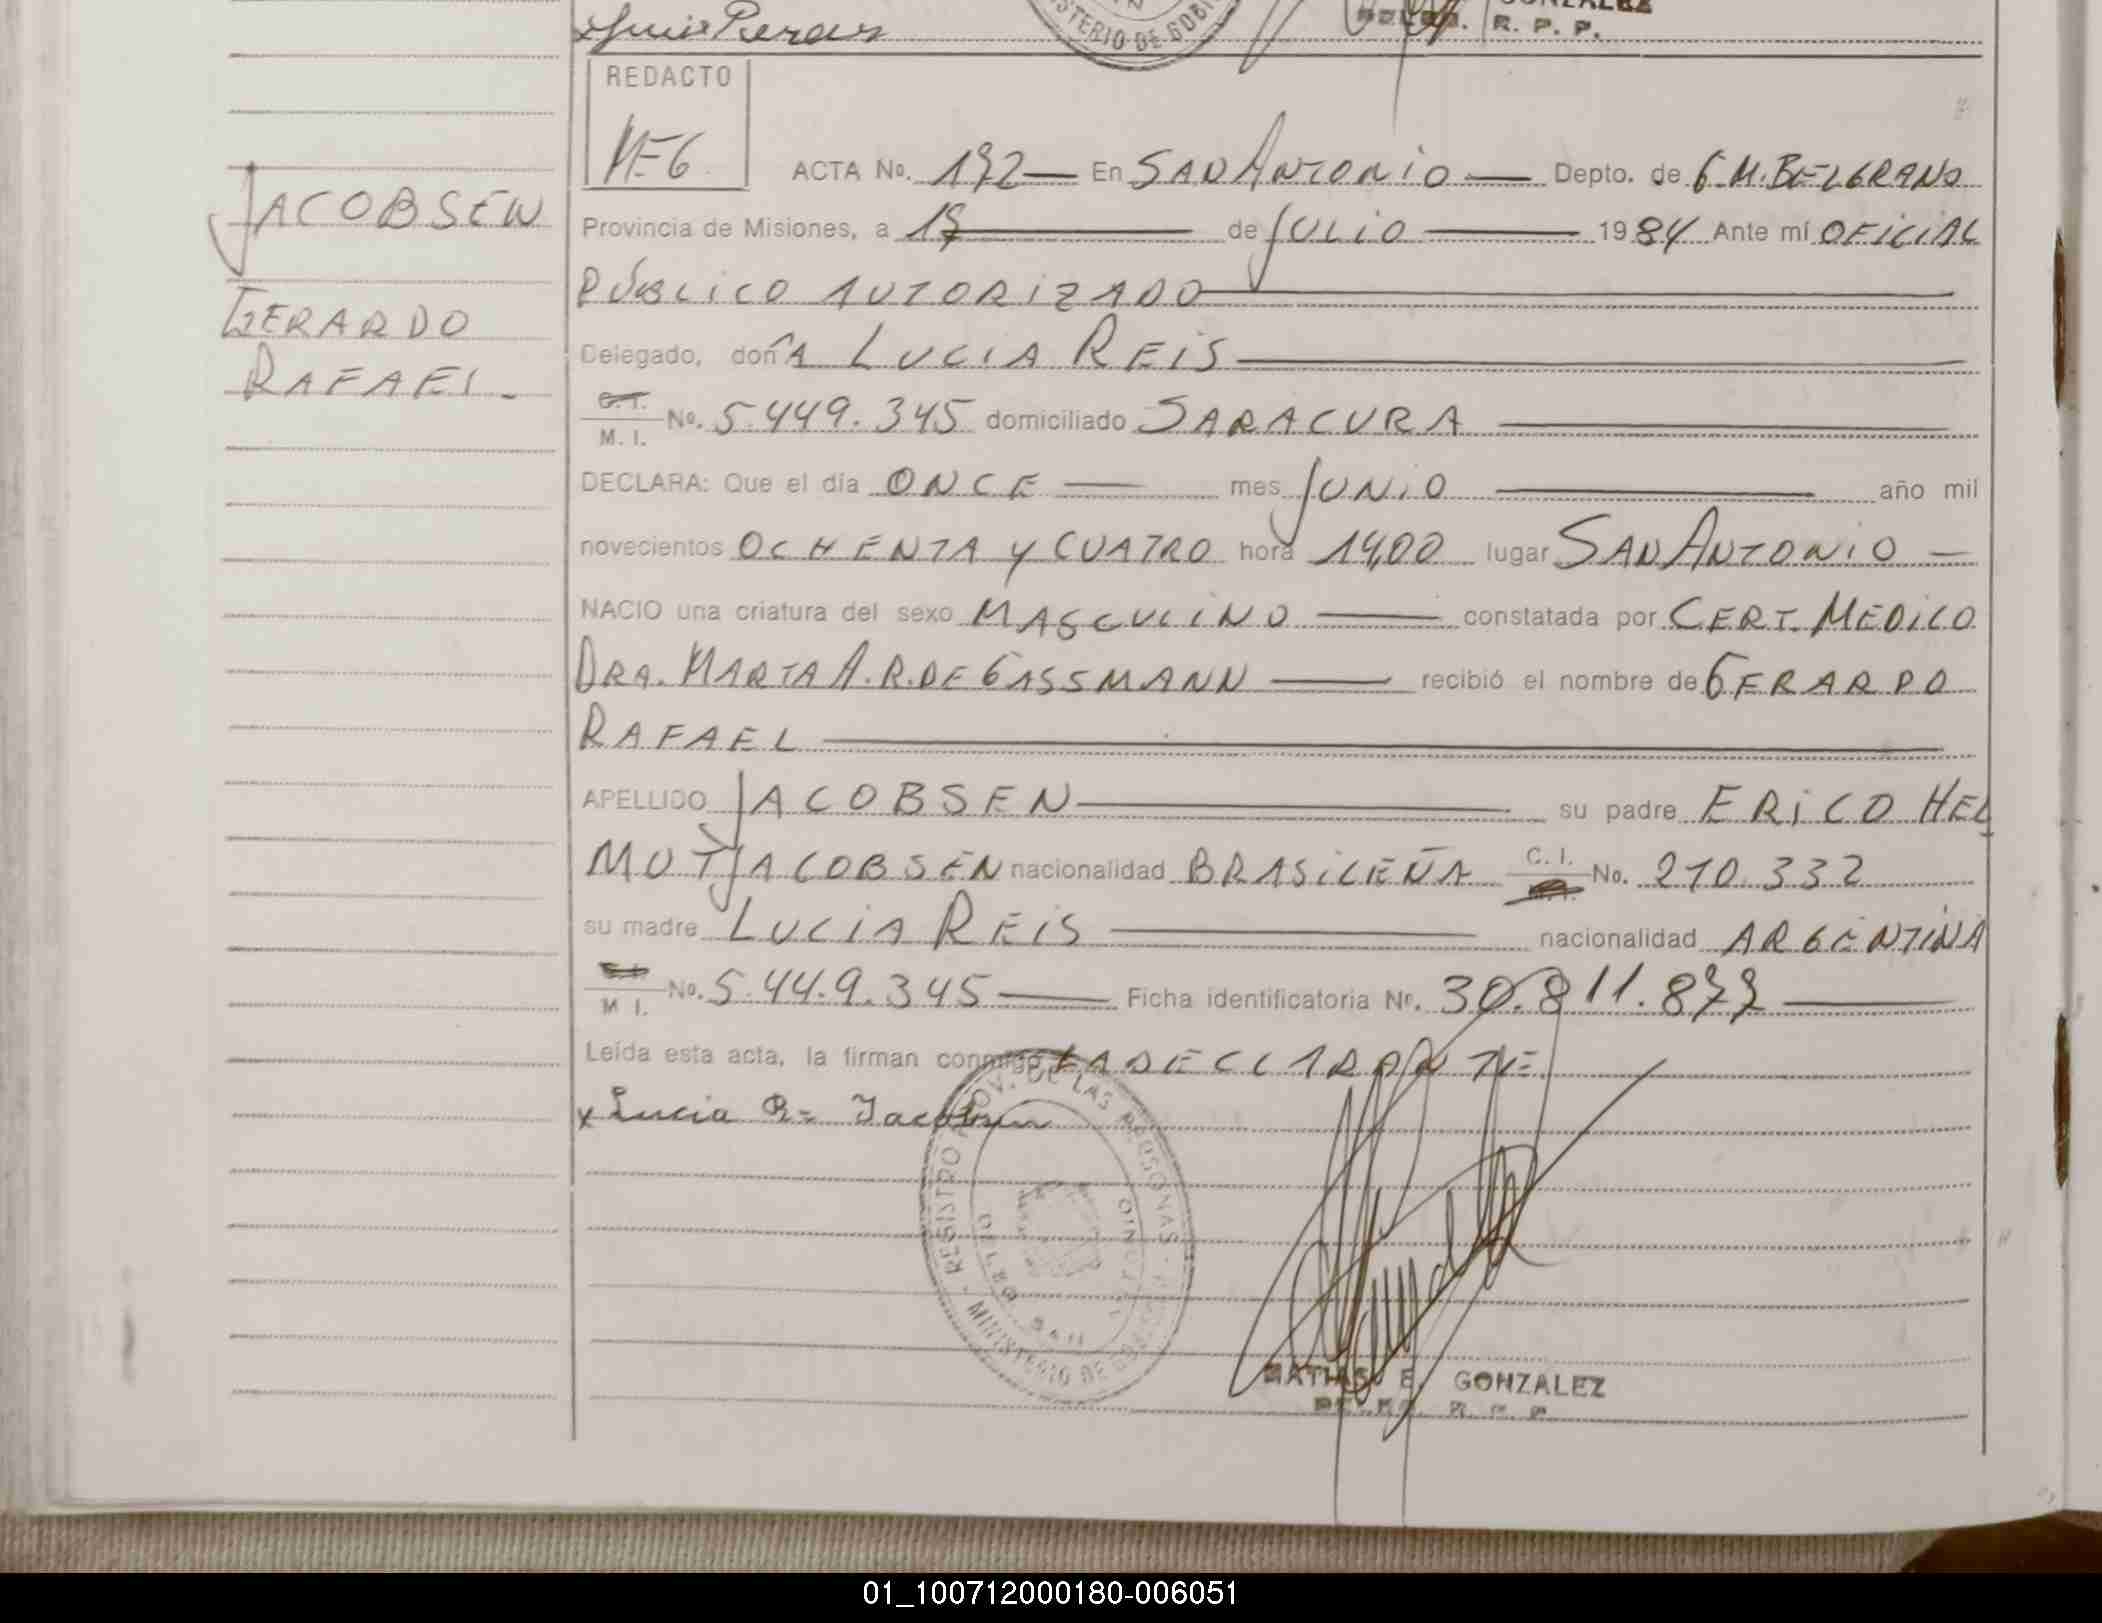 Luis Peray
STERIO DE GOBI
R. P. P.
REDACTO
MEG.
JACOBSEN
GERARDO
RAFAEL.
ACTA No. 172 En SAN ANTONIO Depto. de G.M. BELGRANO
Provincia de Misiones, a 17 de JULIO 1984 Ante mí OFICIAL
PÚBLICO AUTORIZADO
Delegado, doñA LUCIA REIS
C. I. M. I. No. 5.449.345 domiciliado SARACURA
DECLARA: Que el día ONCE mes JUNIO año mil
novecientos OCHENTA Y CUATRO hora 14,00 lugar SAN ANTONIO
NACIO una criatura del sexo MASCULINO constatada por CERT. MEDICO
DRA. MARTA A. R. DE GASSMANN recibió el nombre de GERARDO
RAFAEL
APELLIDO JACOBSEN su padre ERICO HEL
MUT JACOBSEN nacionalidad BRASILEÑA C. I. No. 210.332
su madre LUCIA REIS nacionalidad ARGENTINA
M I. No. 5.449.345 Ficha identificatoria Nº. 30.811.877
Leída esta acta, la firman conmigo LA DECLARANTE
x Lucia R= Jacobsen
REGISTRO PROV. DE LAS PERSONAS
MINISTERIO DE GOBIERNO
MATIAS E. GONZALEZ
01_100712000180-006051